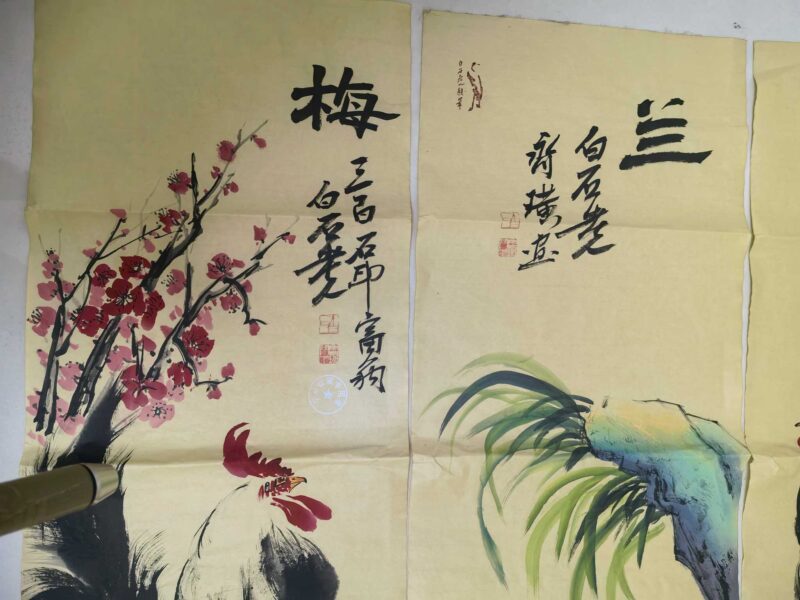 梅
三百石印富翁
白石老人
兰
白石老人
齐璜画